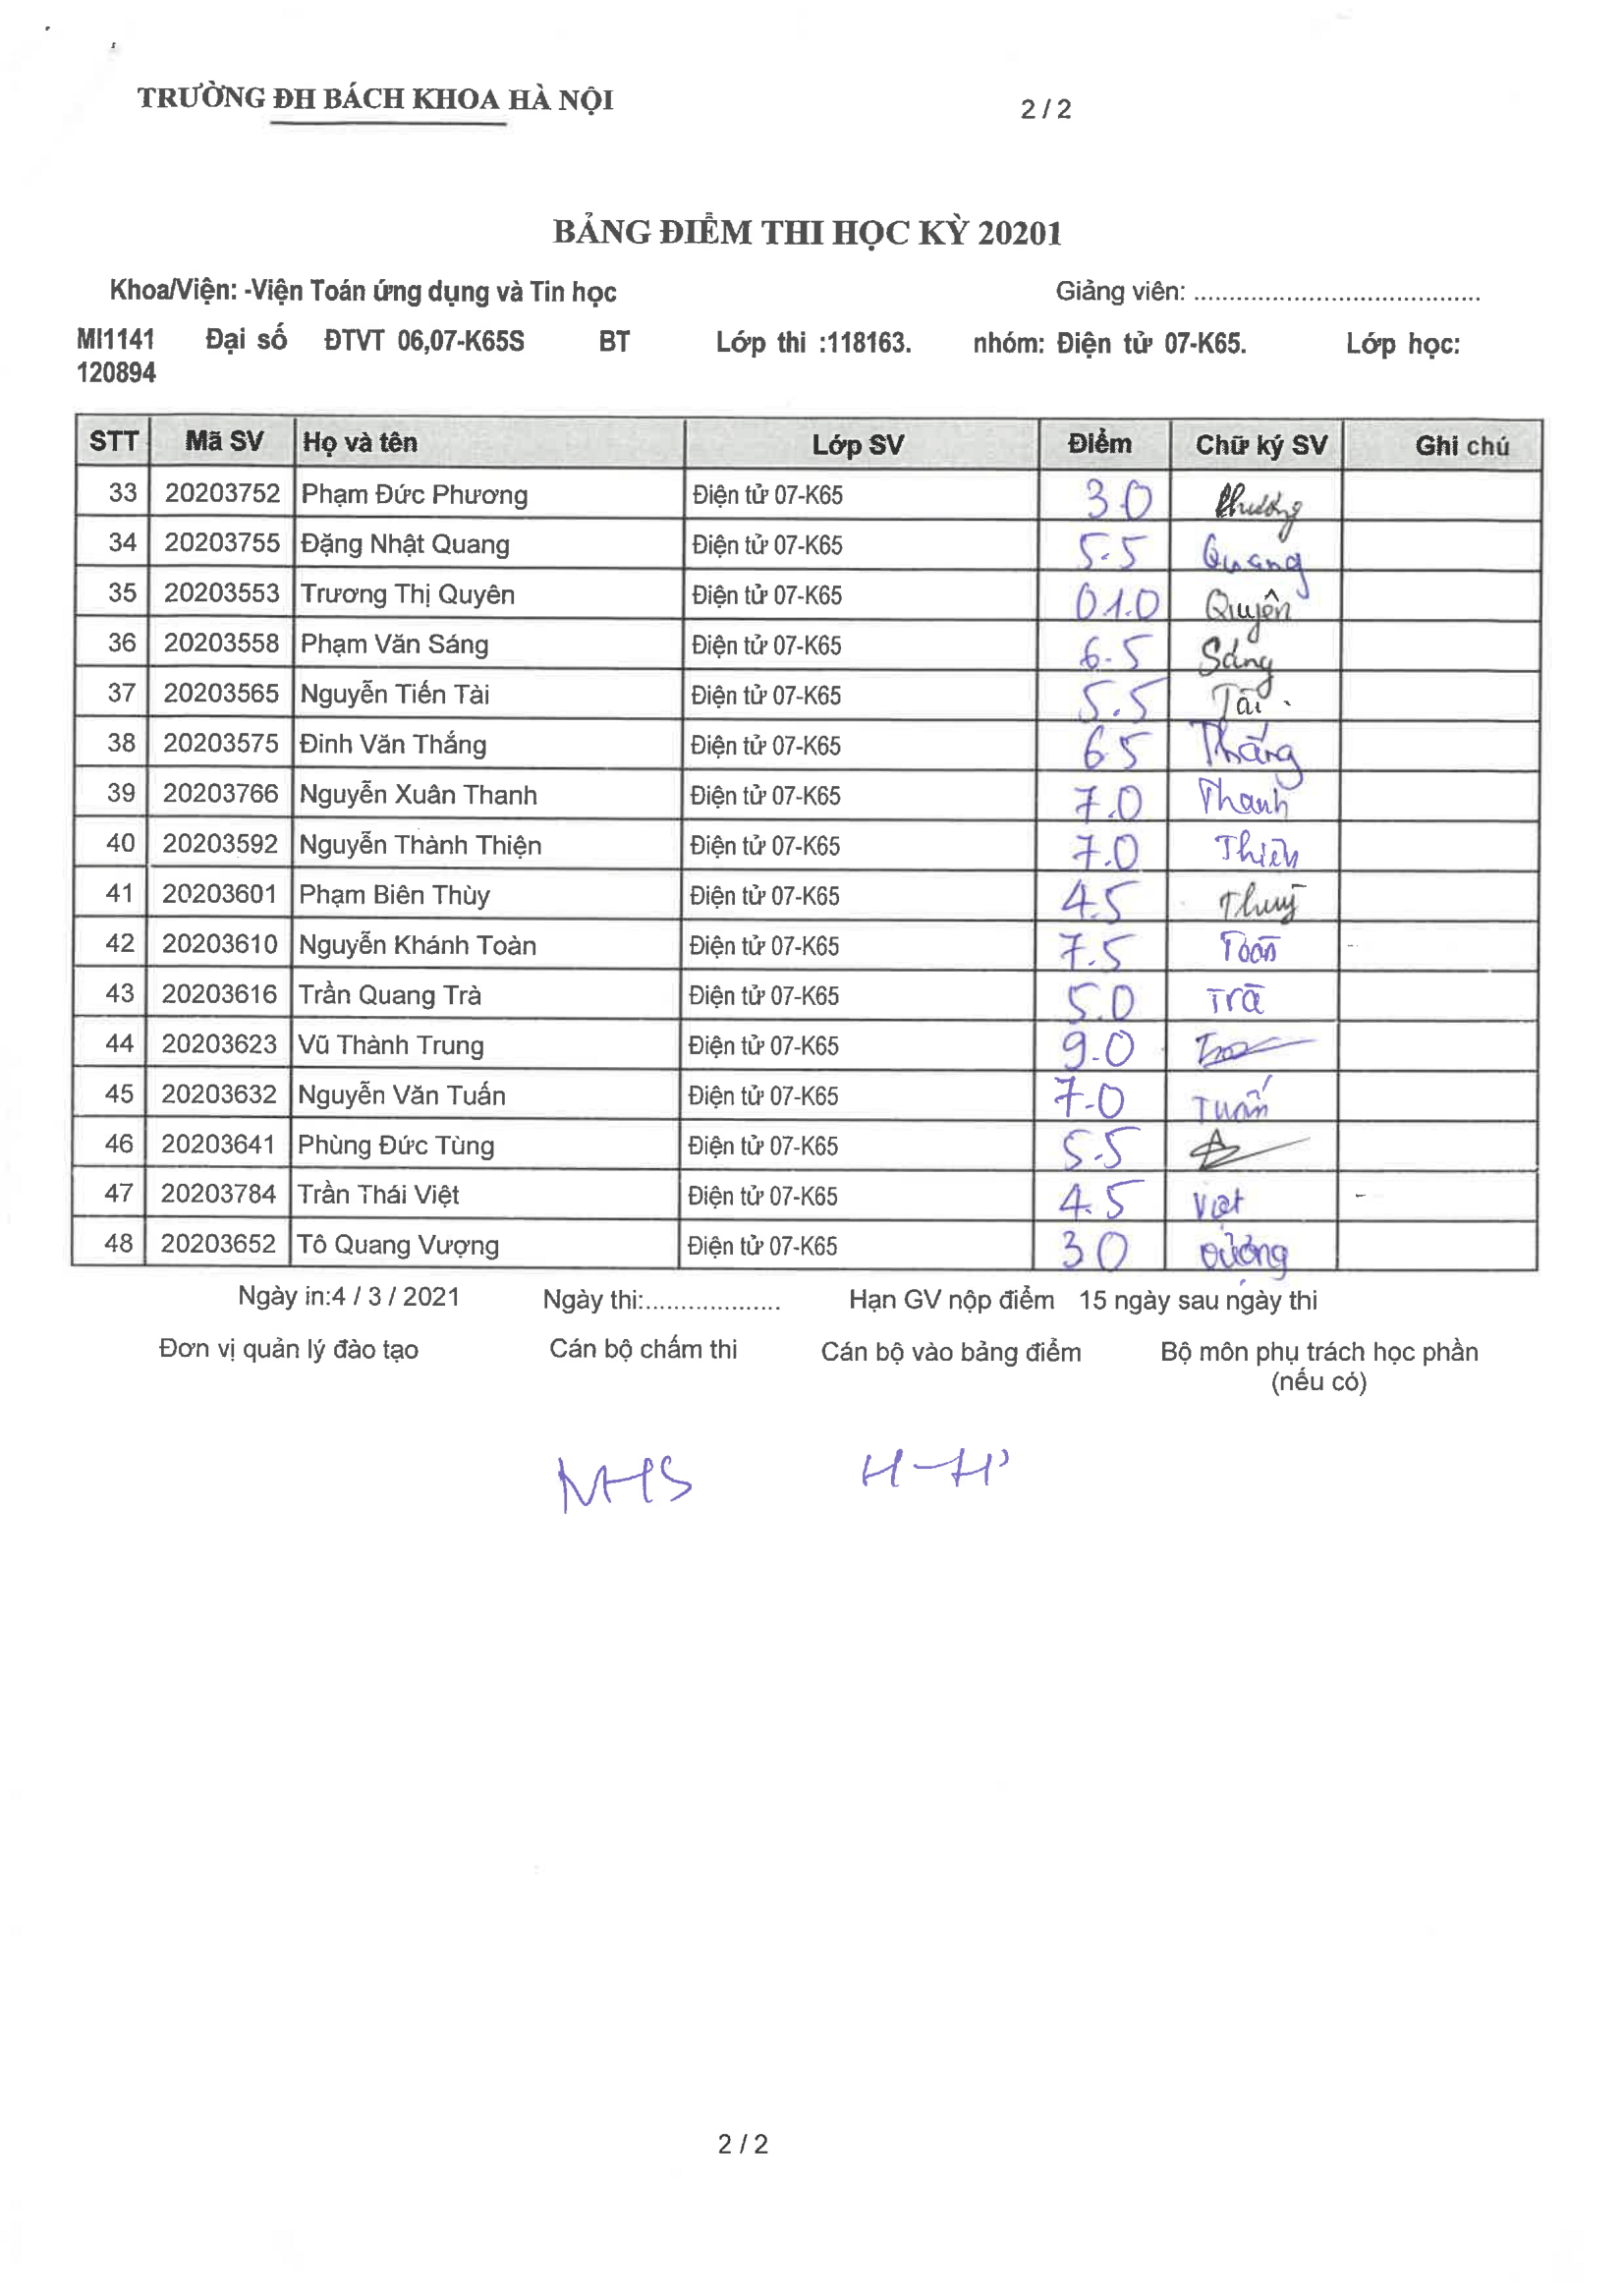 TRƯỜNG ĐH BÁCH KHOA HÀ NỘI 2 / 2
BẢNG ĐIỂM THI HỌC KỲ 20201
Khoa/Viện: -Viện Toán ứng dụng và Tin học Giảng viên: ........................................
MI1141 Đại số ĐTVT 06,07-K65S BT Lớp thi :118163. nhóm: Điện tử 07-K65. Lớp học:
120894
STT Mã SV Họ và tên Lớp SV Điểm Chữ ký SV Ghi chú
33 20203752 Phạm Đức Phương Điện tử 07-K65 3.0 Phương
34 20203755 Đặng Nhật Quang Điện tử 07-K65 5.5 Quang
35 20203553 Trương Thị Quyên Điện tử 07-K65 01.0 Quyên
36 20203558 Phạm Văn Sáng Điện tử 07-K65 6.5 Sáng
37 20203565 Nguyễn Tiến Tài Điện tử 07-K65 5.5 Tài
38 20203575 Đinh Văn Thắng Điện tử 07-K65 6.5 Thắng
39 20203766 Nguyễn Xuân Thanh Điện tử 07-K65 7.0 Thanh
40 20203592 Nguyễn Thành Thiện Điện tử 07-K65 7.0 Thiện
41 20203601 Phạm Biên Thùy Điện tử 07-K65 4.5 Thuỳ
42 20203610 Nguyễn Khánh Toàn Điện tử 07-K65 7.5 Toàn
43 20203616 Trần Quang Trà Điện tử 07-K65 5.0 Trà
44 20203623 Vũ Thành Trung Điện tử 07-K65 9.0
45 20203632 Nguyễn Văn Tuấn Điện tử 07-K65 7.0 Tuấn
46 20203641 Phùng Đức Tùng Điện tử 07-K65 5.5
47 20203784 Trần Thái Việt Điện tử 07-K65 4.5 Việt
48 20203652 Tô Quang Vượng Điện tử 07-K65 3.0 Vượng
Ngày in:4 / 3 / 2021 Ngày thi:................... Hạn GV nộp điểm 15 ngày sau ngày thi
Đơn vị quản lý đào tạo Cán bộ chấm thi Cán bộ vào bảng điểm Bộ môn phụ trách học phần
(nếu có)
2 / 2